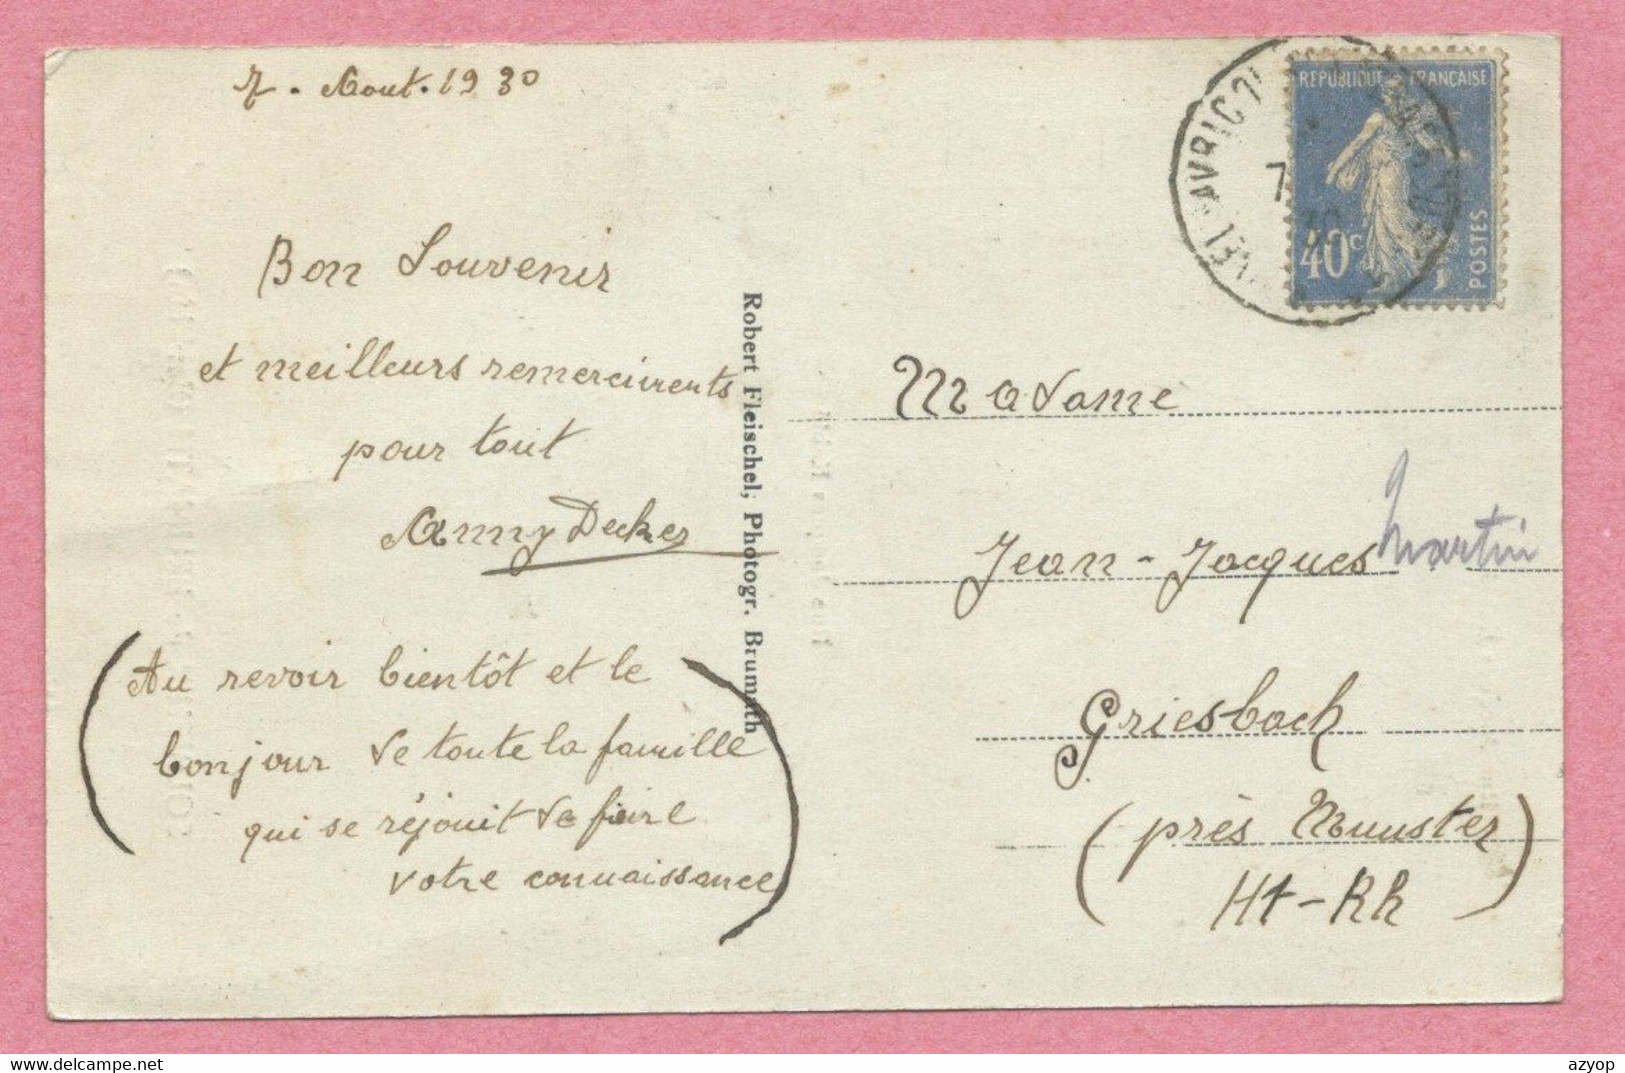 7. Aout. 1930
Bon Souvenir
et meilleurs remerciments
pour tout
Anny Decker
(Au revoir bientôt et le
bonjour de toute la famille
qui se réjouit de faire
votre connaissance)
Robert Fleischel, Photogr. Brumath
REPUBLIQUE FRANÇAISE
40c
POSTES
7
30
Madame
Jean-Jacques Martin
Griesbach
(près Munster)
Ht-Rh
azyop